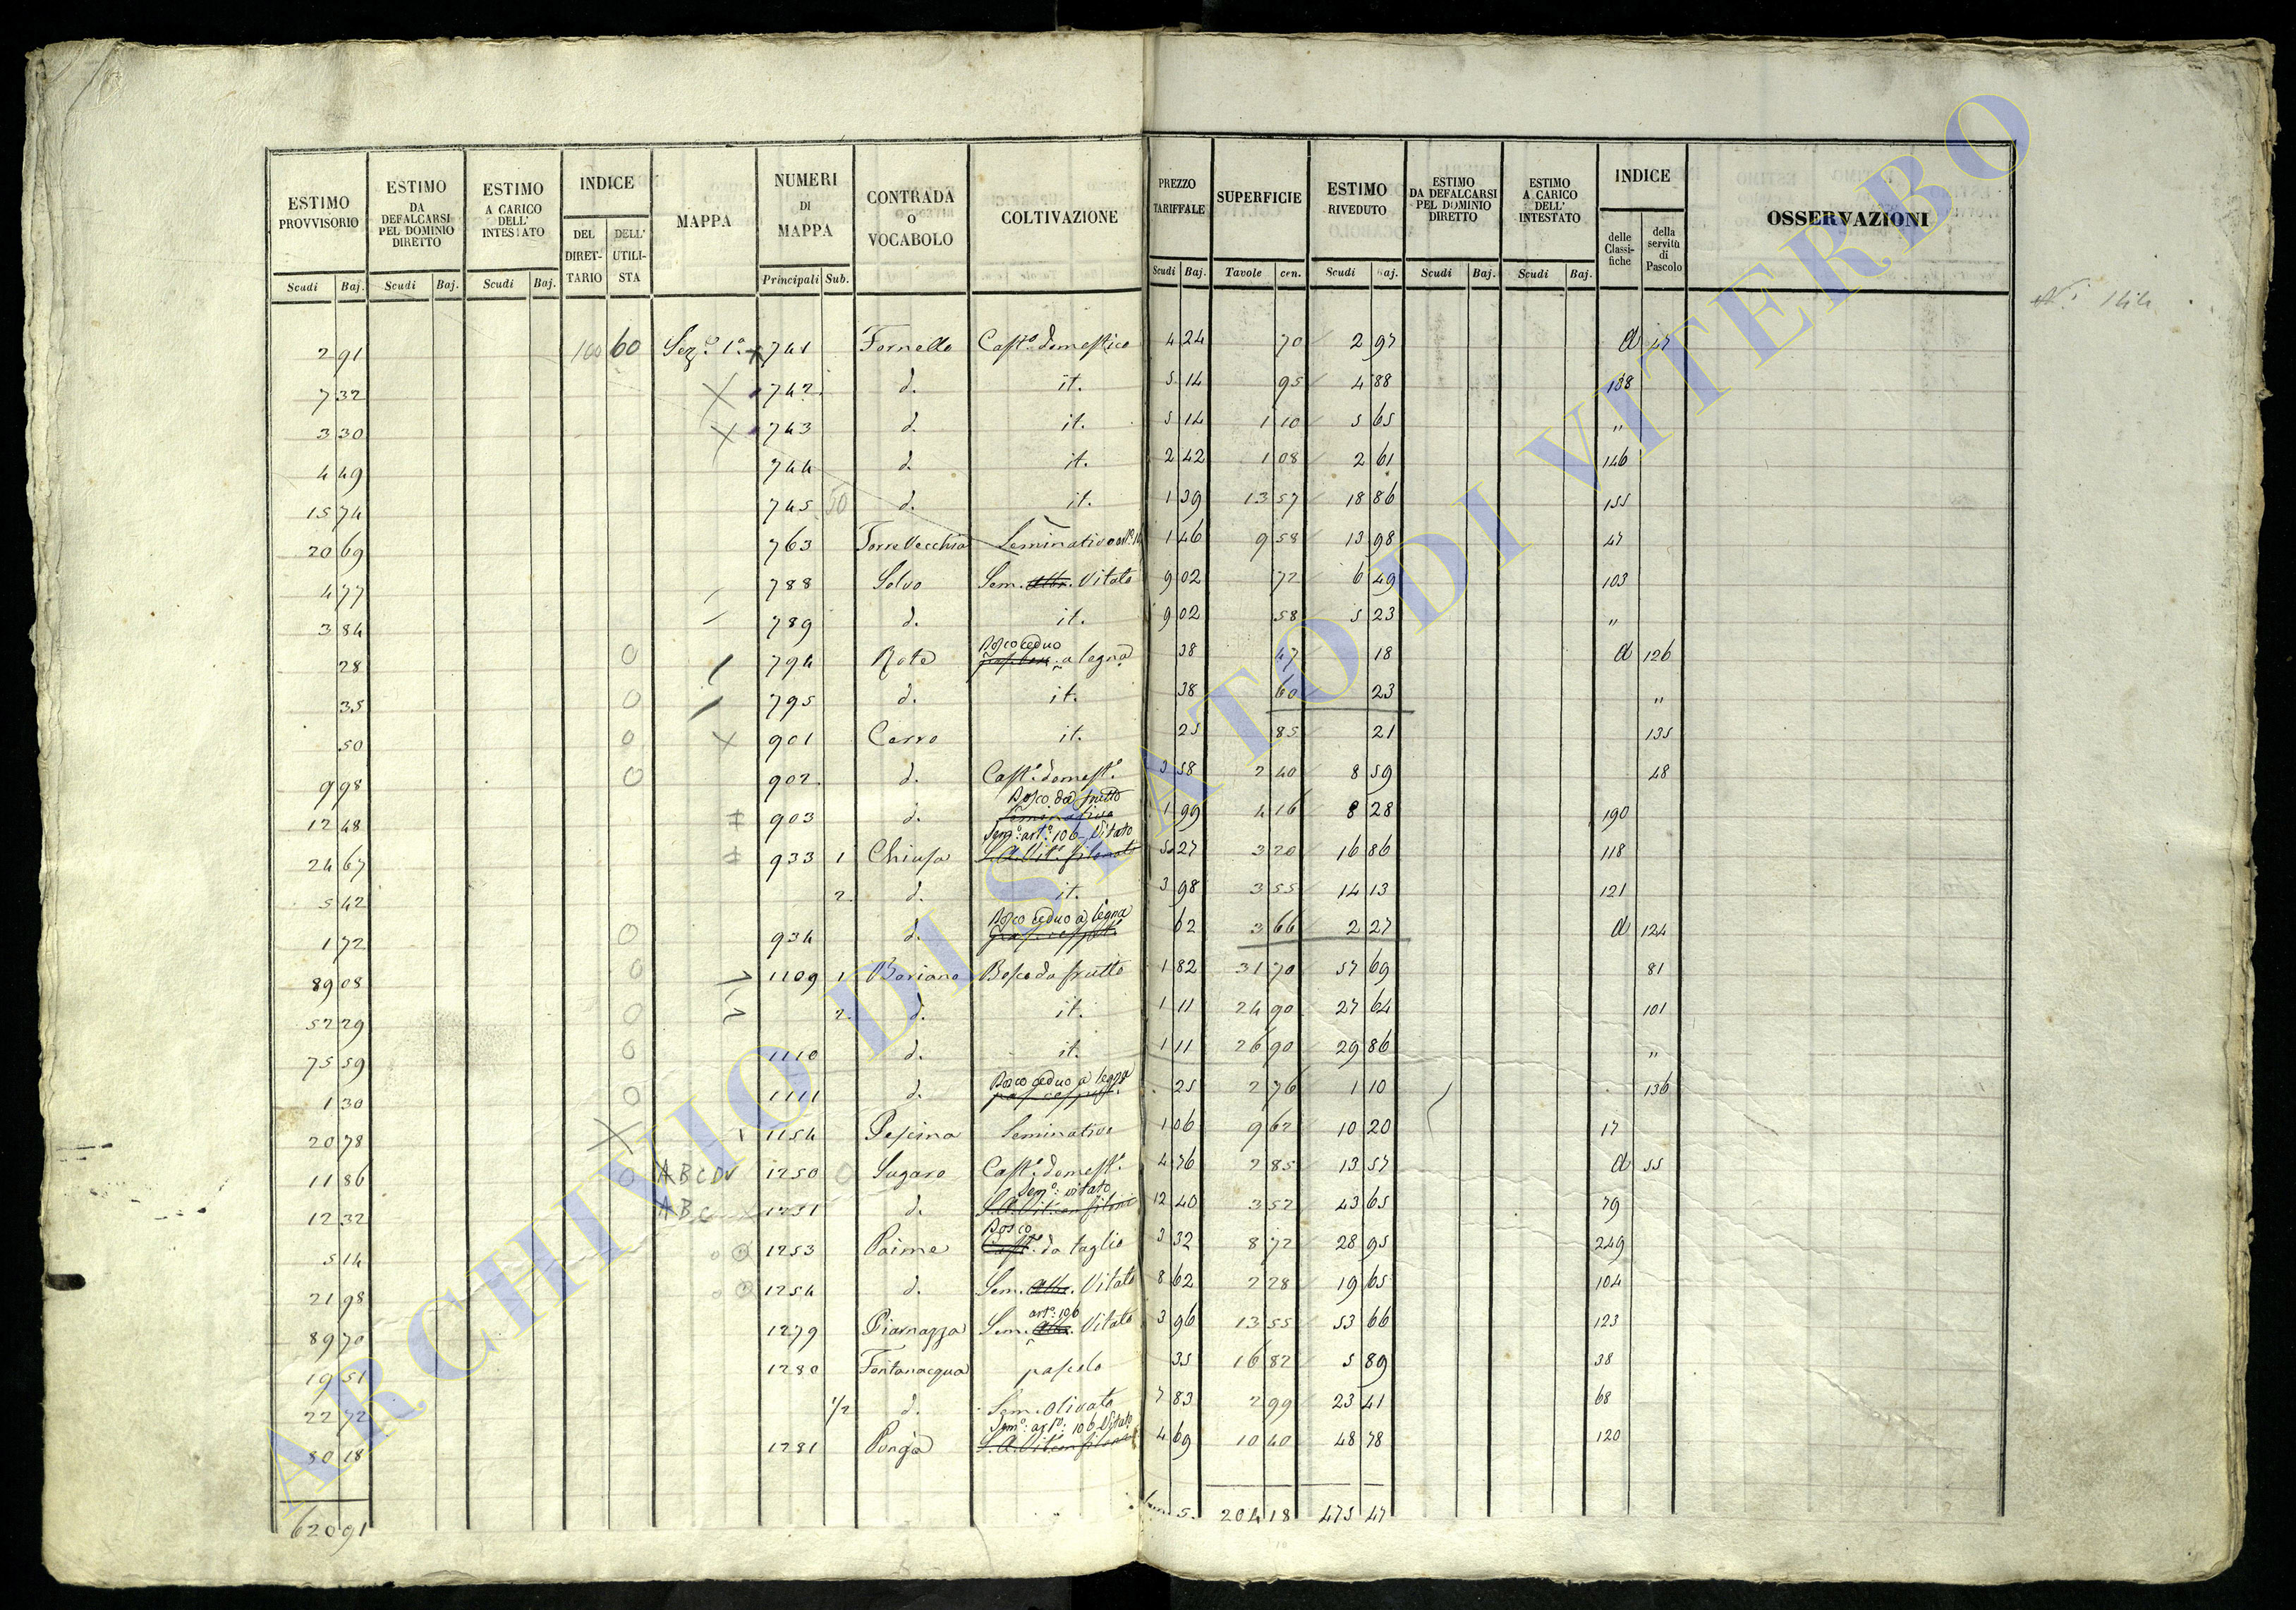 ESTIMO PROVVISORIO | ESTIMO DA DEFALCARSI PEL DOMINIO DIRETTO | ESTIMO A CARICO DELL' INTESTATO | INDICE | MAPPA | NUMERI DI MAPPA | CONTRADA O VOCABOLO | COLTIVAZIONE | PREZZO TARIFFALE | SUPERFICIE | ESTIMO RIVEDUTO | ESTIMO DA DEFALCARSI PEL DOMINIO DIRETTO | ESTIMO A CARICO DELL' INTESTATO | INDICE | OSSERVAZIONI
DEL DIRETTARIO | DELL' UTILISTA | delle Classifiche | della servitù di Pascolo
Scudi | Baj. | Scudi | Baj. | Scudi | Baj. | Principali | Sub. | Scudi | Baj. | Tavole | cen. | Scudi | Baj. | Scudi | Baj. | Scudi | Baj.
2 91 | 100 | 60 | Sez.e 1.a | 741 | Fornello | Cast.o domestico | 4 24 | 70 | 2 97 | d | 47
7 32 | 742 | d. | it. | 5 14 | 95 | 4 88 | 138
3 30 | 743 | d. | it. | 5 14 | 1 10 | 5 65 | "
4 49 | 744 | d. | it. | 2 42 | 1 08 | 2 61 | 146
15 74 | 745 | 50 | d. | it. | 1 39 | 13 57 | 18 86 | 155
20 69 | 763 | Torre Vecchia | Seminativo | 1 46 | 9 58 | 13 98 | 47
4 77 | 788 | Selva | Sem. Alb. Vitato | 9 02 | 72 | 6 49 | 103
3 84 | 789 | d. | it. | 9 02 | 58 | 5 23 | "
28 | 0 | 794 | Rote | Bosco ceduo a legna | 38 | 47 | 18 | d | 126
35 | 0 | 795 | d. | it. | 38 | 60 | 23 | "
50 | 0 | 901 | Cerro | it. | 25 | 85 | 21 | 135
9 98 | 0 | 902 | d. | Cast.o domest.o | 3 58 | 2 40 | 8 59 | 48
12 48 | 903 | d. | Bosco da frutto Seminativo | 1 99 | 4 16 | 8 28 | 190
24 67 | 933 | 1 | Chiusa | Sem.o art.o 106 Vitato | 5 27 | 3 20 | 16 86 | 118
5 42 | 2 | d. | it. | 3 98 | 3 55 | 14 13 | 121
1 72 | 0 | 934 | d. | Bosco ceduo a legna | 62 | 3 66 | 2 27 | d | 124
89 08 | 0 | 1109 | 1 | Boriano | Bosco da frutto | 1 82 | 31 70 | 57 69 | 81
52 29 | 0 | 2 | d. | it. | 1 11 | 24 90 | 27 64 | 101
75 59 | 0 | 1110 | d. | it. | 1 11 | 26 90 | 29 86 | "
1 30 | 0 | 1111 | d. | Bosco ceduo a legna | 25 | 2 76 | 1 10 | 136
20 78 | 1154 | Pescina | Seminativo | 1 06 | 9 62 | 10 20 | 17
11 86 | 0 | ABCDV | 1250 | 0 | Sugaro | Cast.o domest.o | 4 76 | 2 85 | 13 57 | d | 55
12 32 | ABC | 1251 | d. | Sem.o: vitato | 12 40 | 3 52 | 43 65 | 79
5 14 | 1253 | Paime | Bosco Cast. da taglio | 3 32 | 8 72 | 28 95 | 249
21 98 | 1254 | d. | Sem. Alb. Vitato | 8 62 | 2 28 | 19 65 | 104
89 70 | 1279 | Piarnazza | Sem. Alb. art.o: 106 Vitato | 3 96 | 13 55 | 53 66 | 123
19 51 | 1280 | Fontanacqua | pascolo | 35 | 16 82 | 5 89 | 38
22 72 | 1/2 | d. | Sem. Olivato | 7 83 | 2 99 | 23 41 | 68
80 18 | 1281 | Ponga | Sem.o: art.o: 106 Vitato | 4 69 | 10 40 | 48 78 | 120
620 91 | 204 18 | 475 47
ARCHIVIO DI STATO DI VITERBO